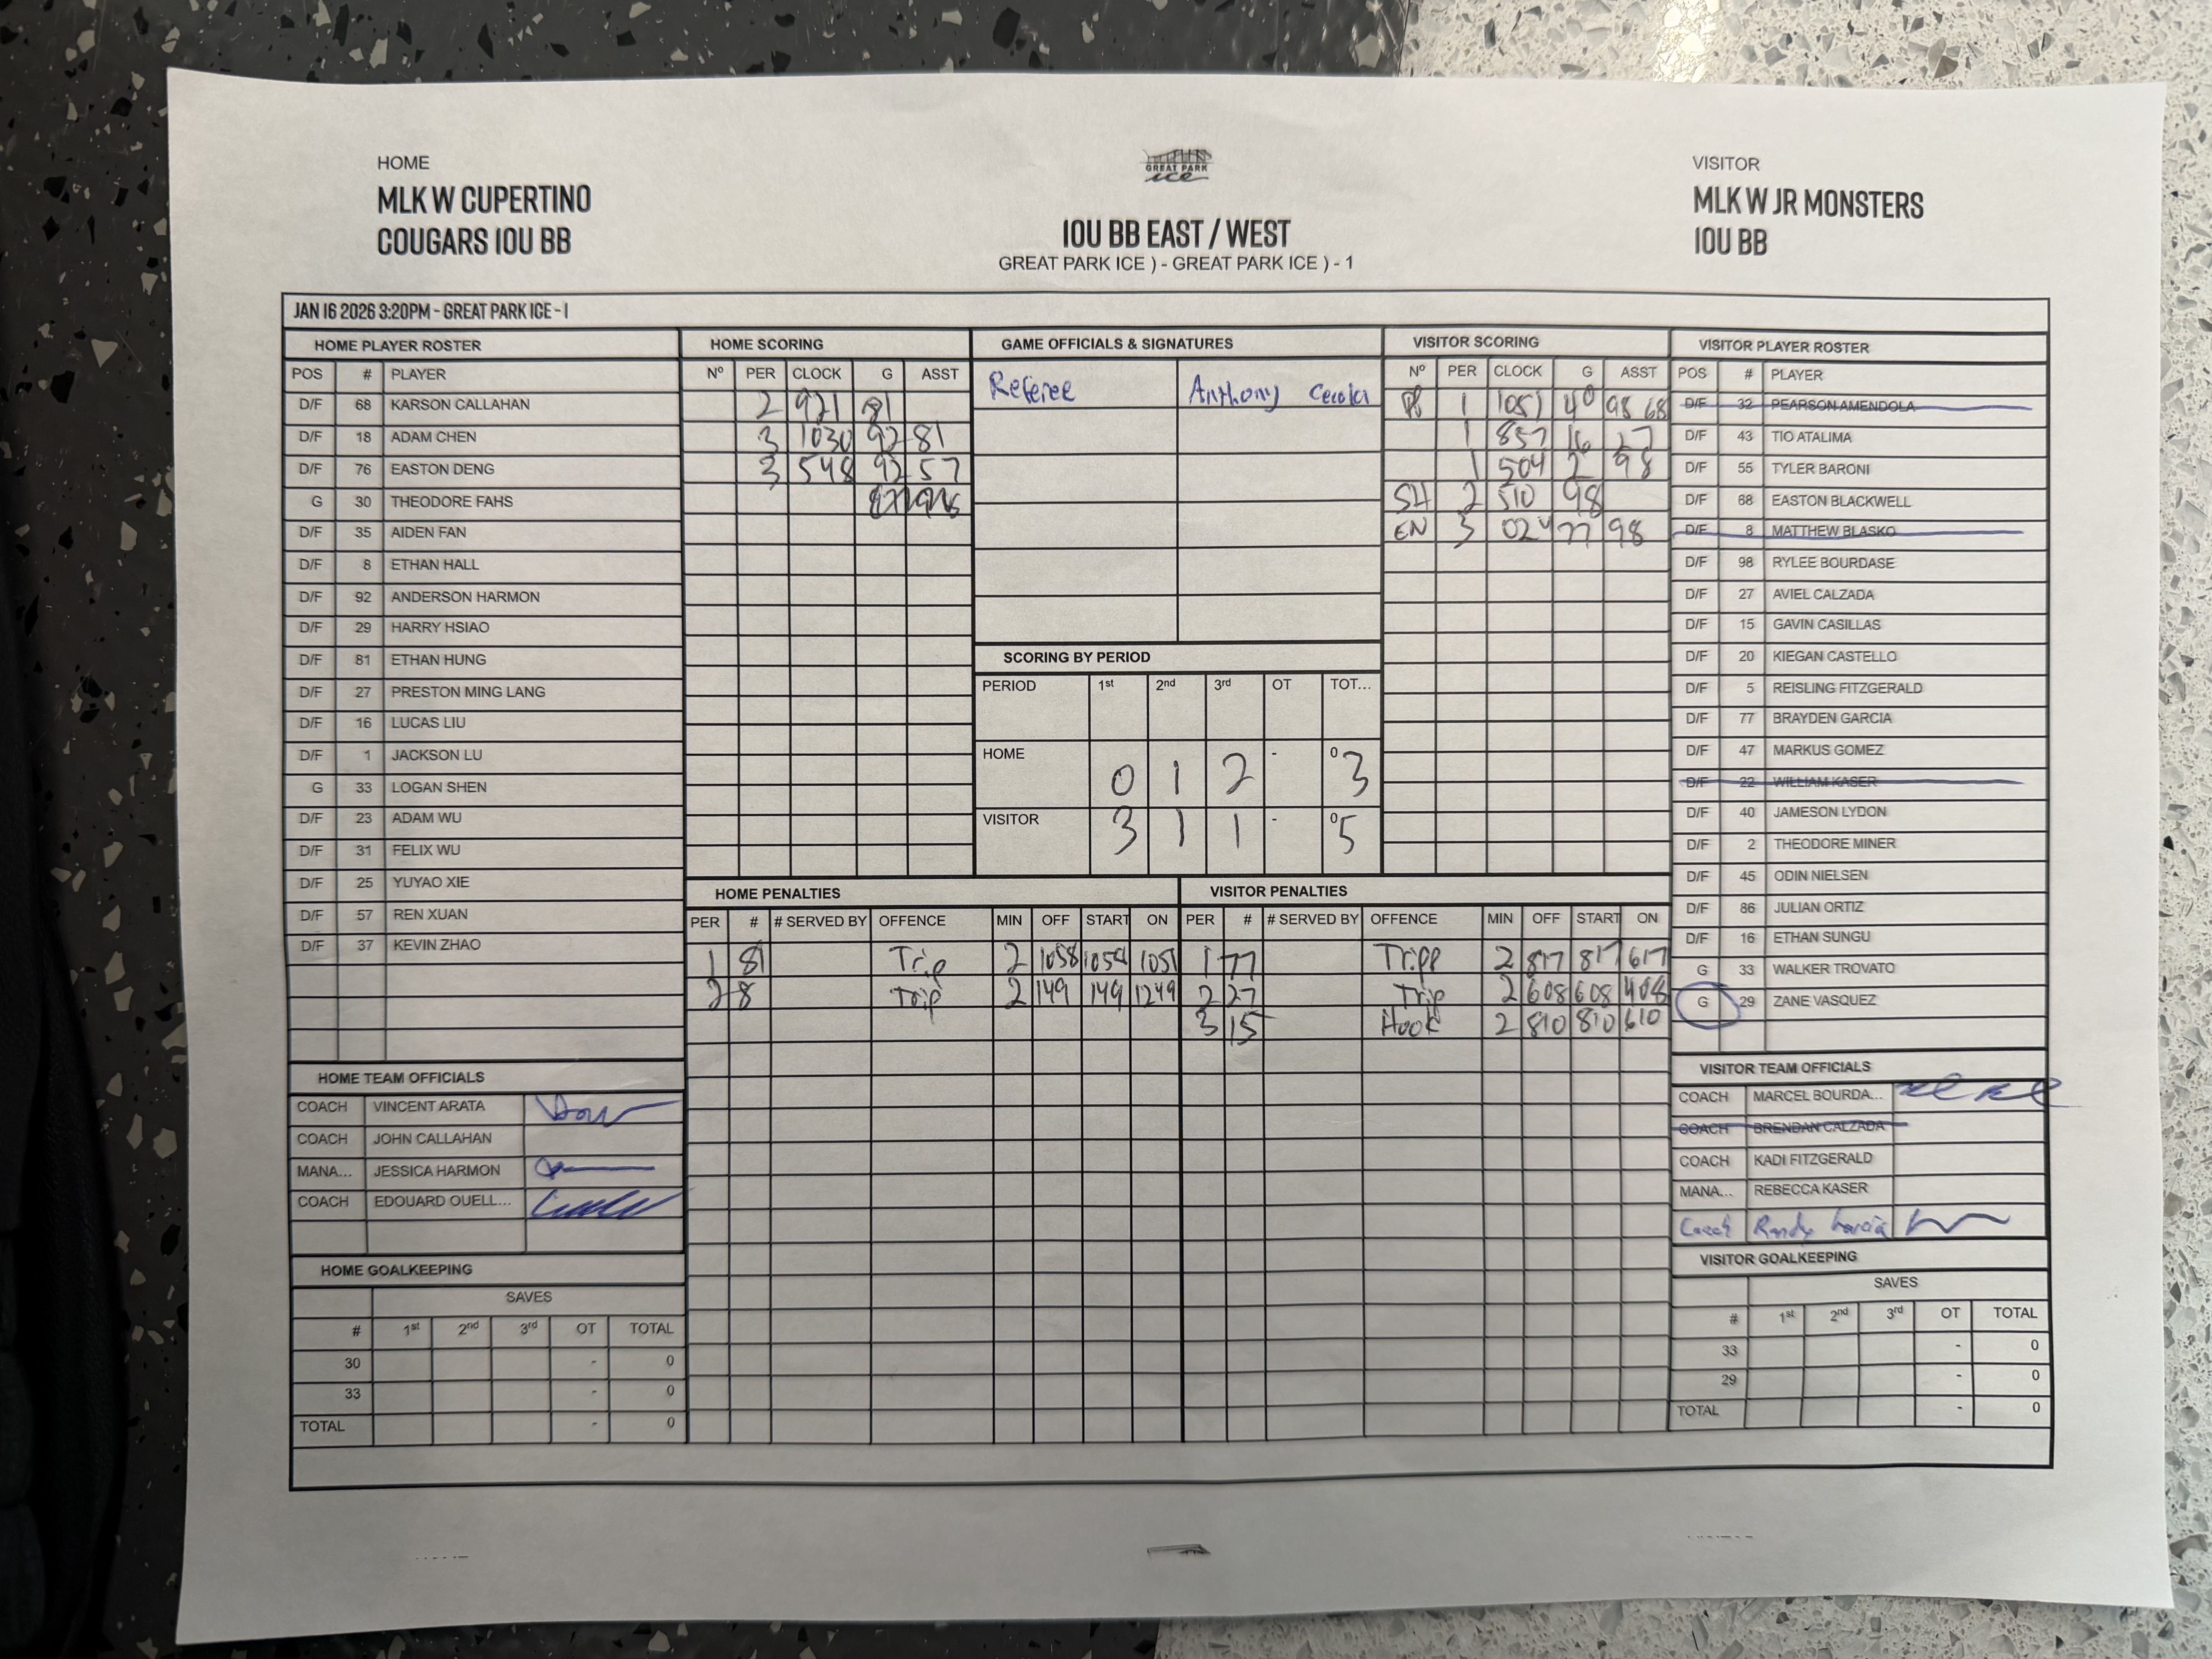 HOME
MLK W CUPERTINO
COUGARS 10U BB
GREAT PARK
ice
10U BB EAST / WEST
GREAT PARK ICE ) - GREAT PARK ICE ) - 1
VISITOR
MLK W JR MONSTERS
10U BB
JAN 16 2026 3:20PM - GREAT PARK ICE - 1
HOME PLAYER ROSTER
POS # PLAYER
D/F 68 KARSON CALLAHAN
D/F 18 ADAM CHEN
D/F 76 EASTON DENG
G 30 THEODORE FAHS
D/F 35 AIDEN FAN
D/F 8 ETHAN HALL
D/F 92 ANDERSON HARMON
D/F 29 HARRY HSIAO
D/F 81 ETHAN HUNG
D/F 27 PRESTON MING LANG
D/F 16 LUCAS LIU
D/F 1 JACKSON LU
G 33 LOGAN SHEN
D/F 23 ADAM WU
D/F 31 FELIX WU
D/F 25 YUYAO XIE
D/F 57 REN XUAN
D/F 37 KEVIN ZHAO
HOME TEAM OFFICIALS
COACH VINCENT ARATA
COACH JOHN CALLAHAN
MANA... JESSICA HARMON
COACH EDOUARD OUELL...
HOME GOALKEEPING
SAVES
# 1st 2nd 3rd OT TOTAL
30 - 0
33 - 0
TOTAL - 0
HOME SCORING
Nº PER CLOCK G ASST
2 921 81
3 1030 92 81
3 548 92 57
GAME OFFICIALS & SIGNATURES
Referee Anthony
SCORING BY PERIOD
PERIOD 1st 2nd 3rd OT TOT...
HOME 0 1 2 - 0 3
VISITOR 3 1 1 - 0 5
VISITOR SCORING
Nº PER CLOCK G ASST
1 1051 40 98 68
1 857 16 27
1 504 2 98
SH 2 510 98
EN 3 024 77 98
HOME PENALTIES
PER # # SERVED BY OFFENCE MIN OFF START ON
1 81 Trip 2 1058 1058 1051
2 8 Trip 2 149 149 1249
VISITOR PENALTIES
PER # # SERVED BY OFFENCE MIN OFF START ON
1 77 Tripp 2 817 817 617
2 27 Trip 2 608 608 408
3 15 Hook 2 810 810 610
VISITOR PLAYER ROSTER
POS # PLAYER
D/F 32 PEARSON AMENDOLA
D/F 43 TIO ATALIMA
D/F 55 TYLER BARONI
D/F 68 EASTON BLACKWELL
D/F 8 MATTHEW BLASKO
D/F 98 RYLEE BOURDASE
D/F 27 AVIEL CALZADA
D/F 15 GAVIN CASILLAS
D/F 20 KIEGAN CASTELLO
D/F 5 REISLING FITZGERALD
D/F 77 BRAYDEN GARCIA
D/F 47 MARKUS GOMEZ
D/F 22 WILLIAM KASER
D/F 40 JAMESON LYDON
D/F 2 THEODORE MINER
D/F 45 ODIN NIELSEN
D/F 86 JULIAN ORTIZ
D/F 16 ETHAN SUNGU
G 33 WALKER TROVATO
G 29 ZANE VASQUEZ
VISITOR TEAM OFFICIALS
COACH MARCEL BOURDA...
COACH BRENDAN CALZADA
COACH KADI FITZGERALD
MANA... REBECCA KASER
Coach Randy Garcia
VISITOR GOALKEEPING
SAVES
# 1st 2nd 3rd OT TOTAL
33 - 0
29 - 0
TOTAL - 0